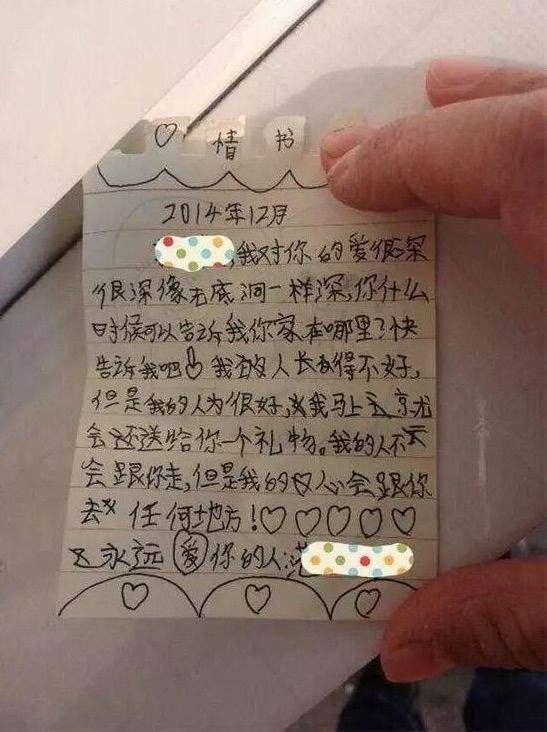 ♡ 情书
2014年12月
,我对你的爱很深
很深像无底洞一样深,你什么
时候可以告诉我你家在哪里?快
告诉我吧!我的人长的得不好,
但是我的人为很好,我马上
会还送给你一个礼物。我的人不
会跟你走,但是我的心会跟你
去任何地方!♡♡♡♡♡
永远爱你的人: